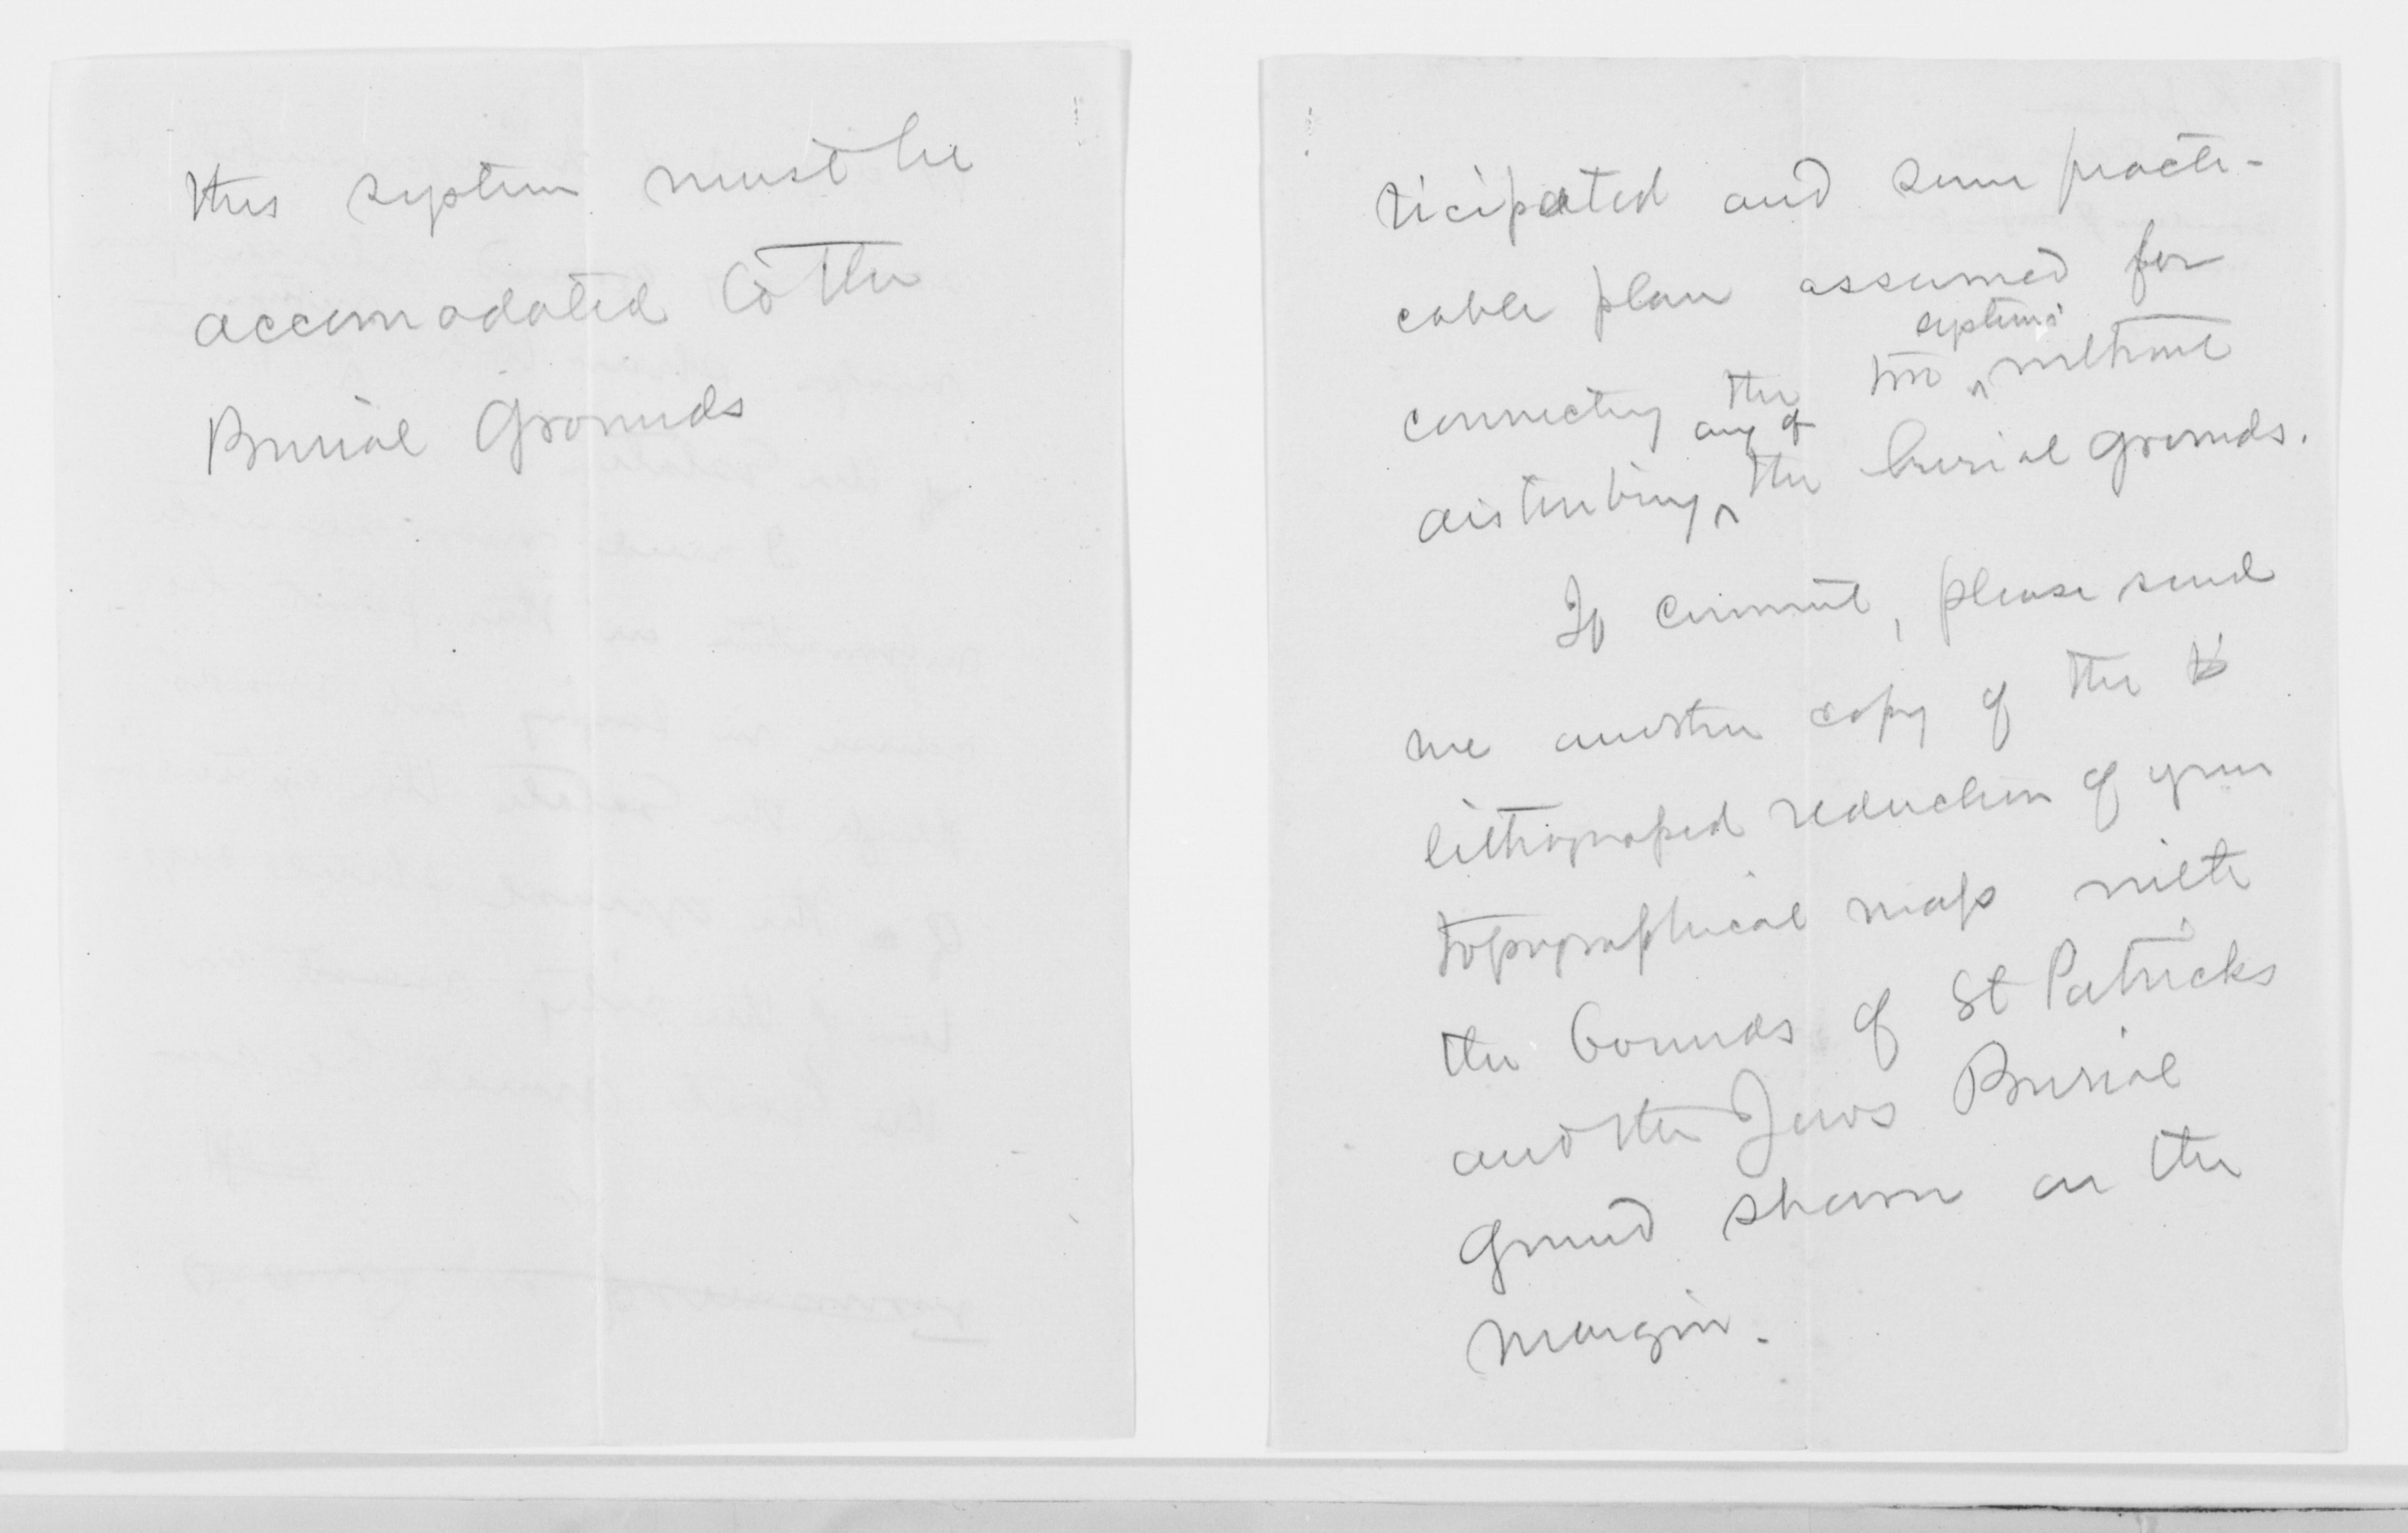 this system must be
accomodated to the
Burial Grounds
ticipated and some practi-
cable plan assumed for
systems
connecting the two ^ without
any of
disturbing ^ the burial grounds.
If convenient, please send
me another copy of the
lithograped reduction of your
topographical map with
the bounds of St Patricks
and the Jews Burial
Ground shown on the
margin.